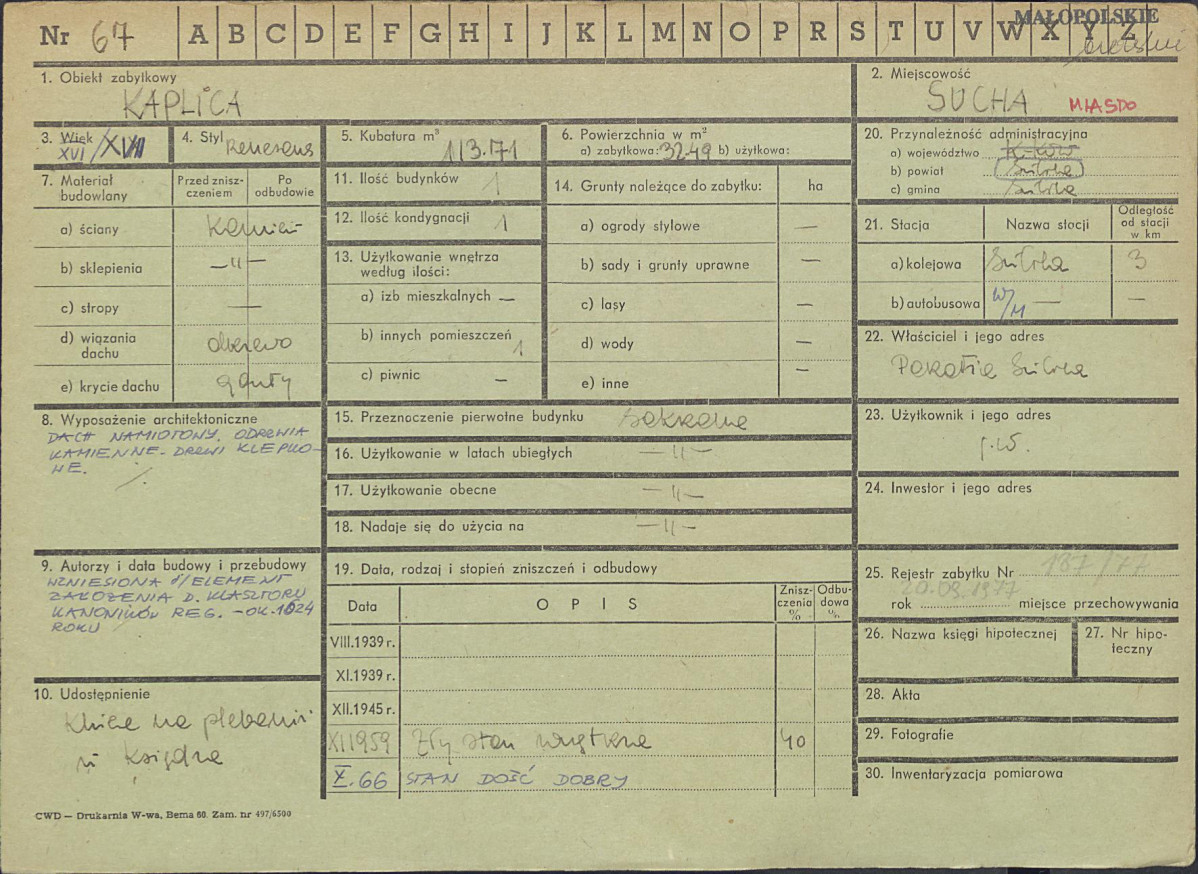 Nr 67 A B C D E F G H I J K L M N O P R S T U V W X Y Z
MAŁOPOLSKIE
1. Obiekt zabytkowy
KAPLICA
2. Miejscowość
SUCHA MIASTO
3. Wiek
XVI/XVII
4. Styl Renesans
5. Kubatura m³
113.71
6. Powierzchnia w m²
a) zabytkowa: 32.49 b) użytkowa:
7. Materiał budowlany
Przed zniszczeniem
Po odbudowie
a) ściany kamień
b) sklepienia —"—
c) stropy —
d) wiązania dachu drzewo
e) krycie dachu gonty
8. Wyposażenie architektoniczne
DACH NAMIOTOWY. ODRZWIA
KAMIENNE - DRZWI KLEPKO-
NE.
9. Autorzy i data budowy i przebudowy
WZNIESIONA J/ELEMENT
ZAŁOŻENIA D. KLASZTORU
KANONIKÓW REG. - OK. 1624
ROKU
10. Udostępnienie
Klucze na plebanii
u księdza
CWD — Drukarnia W-wa, Bema 60. Zam. nr 497/6500
11. Ilość budynków 1
12. Ilość kondygnacji 1
13. Użytkowanie wnętrza
według ilości:
a) izb mieszkalnych —
b) innych pomieszczeń 1
c) piwnic —
14. Grunty należące do zabytku: ha
a) ogrody stylowe —
b) sady i grunty uprawne —
c) lasy —
d) wody —
e) inne —
15. Przeznaczenie pierwotne budynku sakralne
16. Użytkowanie w latach ubiegłych —"—
17. Użytkowanie obecne —"—
18. Nadaje się do użycia na —"—
19. Data, rodzaj i stopień zniszczeń i odbudowy
Data O P I S Zniszczenia % Odbudowa %
VIII.1939 r.
XI.1939 r.
XII.1945 r.
XI 1959 Zły stan wnętrza 40
X.66 STAN DOŚĆ DOBRY
20. Przynależność administracyjna
a) województwo K-ków
b) powiat (Sucha)
c) gmina Sucha
21. Stacja Nazwa stacji Odległość od stacji w km
a) kolejowa Sucha 3
b) autobusowa W/M — —
22. Właściciel i jego adres
Parafia Sucha
23. Użytkownik i jego adres
j.w.
24. Inwestor i jego adres
25. Rejestr zabytku Nr 187/77
20.09.1977
rok miejsce przechowywania
26. Nazwa księgi hipotecznej
27. Nr hipoteczny
28. Akta
29. Fotografie
30. Inwentaryzacja pomiarowa